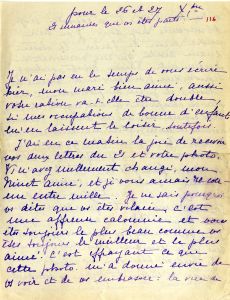 pour le 26 et 27 Xbre 116
2 semaines que vs êtes parti
Je n'ai pas eu le temps de vous écrire
hier, mon mari bien aimé, aussi
votre ration va-t-elle être double
si mes occupations de bonne d'enfant
m'en laissent le loisir, toutefois.
J'ai eu ce matin la joie de recevoir
vos deux lettres du et votre photo.
Vs n'avez nullement changé, mon
Minet aimé, et je vous aimerais
une entre mille. Je ne sais pourquoi
vs dites que vs êtes vilain, c'est
une affreuse calomnie et vous
êtes toujours le plus beau comme vs
êtes toujours le meilleur et le plus
aimé. C'est effrayant ce que
cette photo m'a donné envie de
vs voir et de vs embrasser: la vue de